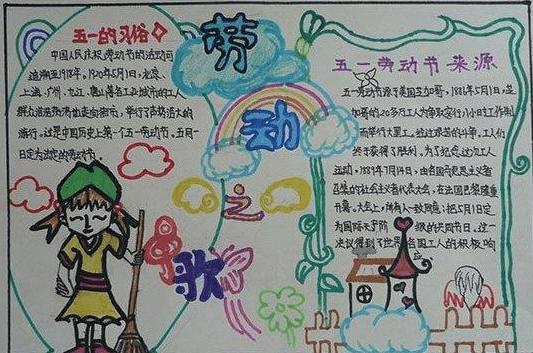 五一的习俗
中国人民庆祝劳动节的活动可
追溯至1918年。1920年5月1日,北京、
上海、广州、九江、唐山等各工业城市的工人
群众浩浩荡荡地走向街市,举行了声势浩大的
游行。这是中国历史上第一个五一劳动节。五月一
日定为法定的劳动节。
劳
动
之
歌
五一劳动节来源
五一劳动节源于美国芝加哥,1886年5月1日,芝
加哥的20多万工人为争取实行八小时工作制
而举行大罢工。经过艰苦的斗争,工人们
终于获得了胜利。为了纪念这次工人
运动,1889年7月14日,由各国马克思主义者
召集的社会主义者代表大会,在法国巴黎隆重
开幕。大会上,所有人一致同意:把5月1日定
为国际无产阶级的共同节日。这一
决议得到了世界各国工人的积极响
应。